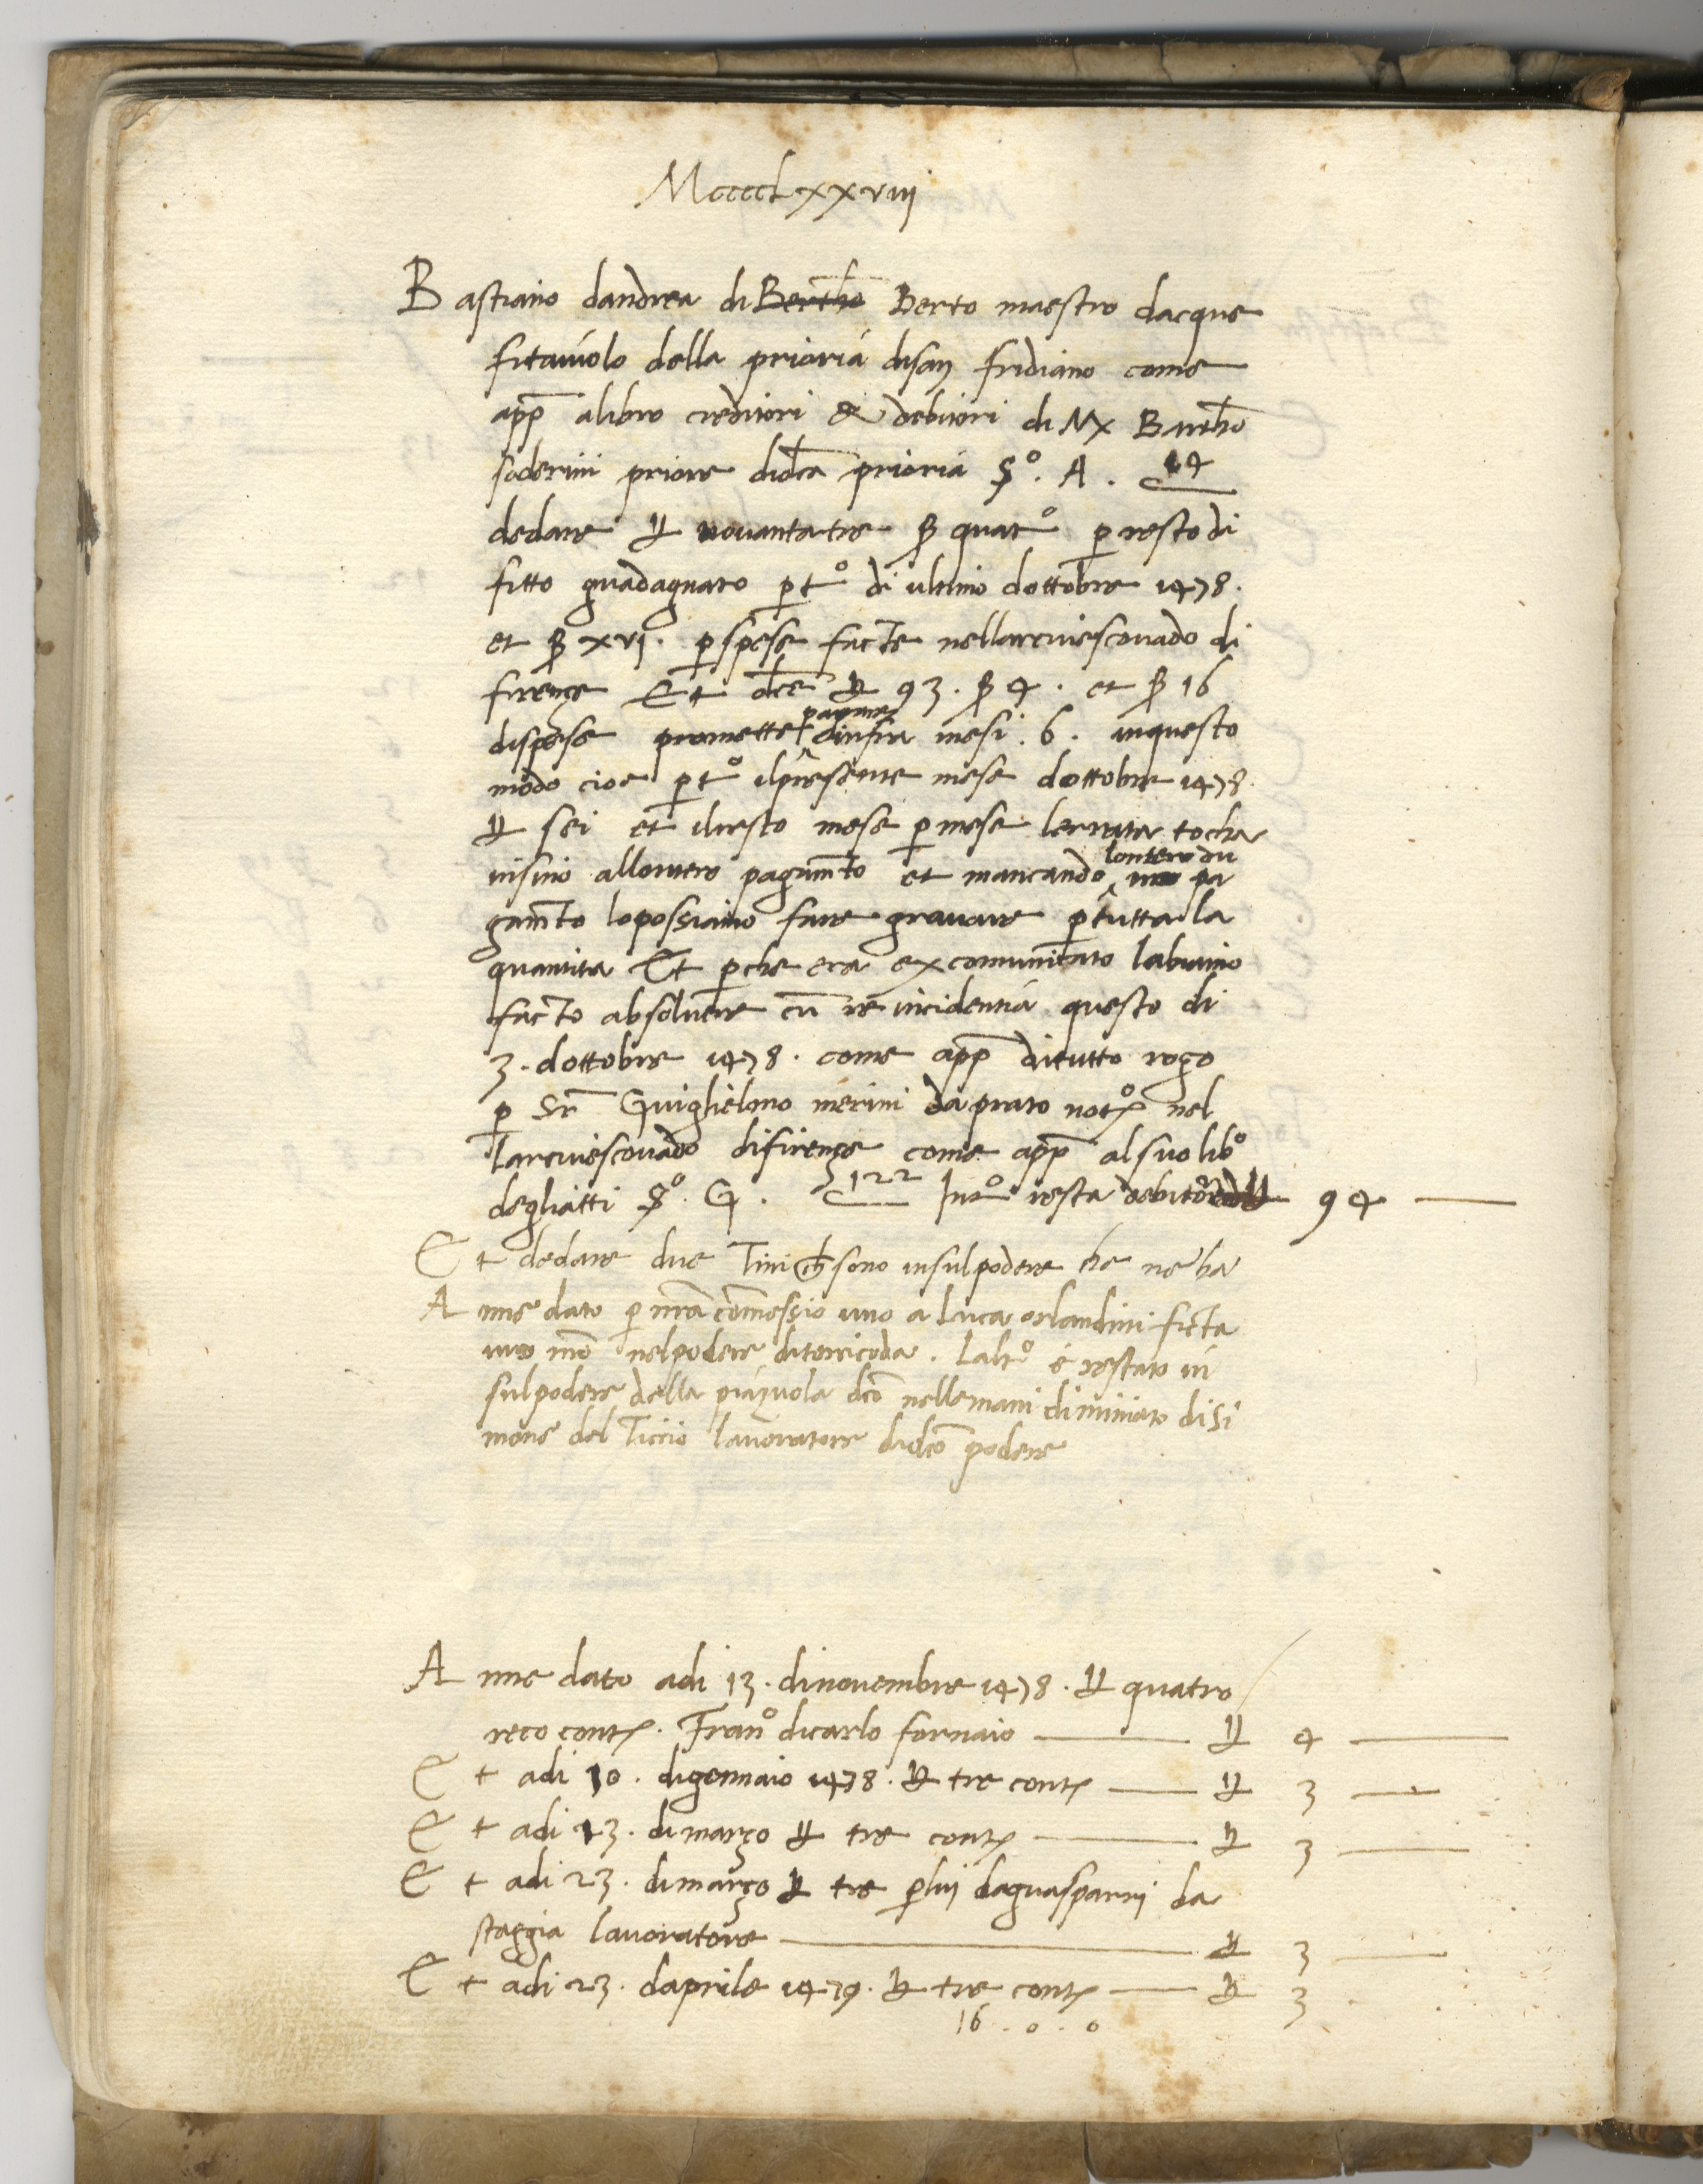 MccccLxxviii
Bastiano dandrea di Bertho Berto maestro dacque
fitaiuolo della prioria disan fridiano come
app alibro creditori & debitori di Mx Bartho
soderini priore didca prioria So. A. 14
dedare ₶ novantatre ß quatro p resto di
fitto guadagnato pto di ultimo dottobre 1478.
et ß xvj. p spese facte nellarcivescovado di
firenze Et dce ₶ 93. ß 4. et ß 16
dispese promette pagare infra mesi . 6 . inquesto
modo cioe pto ilpresente mese dottobre 1478
₶ sei et ilresto mese p mese larata tocha
insino allontero pagamto et mancando lontero du pa
gamto lopossiamo fare gravare p tutta la
quantita Et pche era excomunicato labiamo
facto absolvere cu reincidentia questo di
3. dottobre 1478. come app ditutto rogo
p Sr Guiglielmo merini da prato noto nel
larcivescovado difirenze come app alsuo libo
degliatti So. G. 122 Into resta debitore ₶ 94
Et dedare due Tini ch sono insulpodere che ne ha
Anne dato p nra comessio uno a Luca orlandini ficta
iuo mo nelpodere ditorricoda. Laltro é restato in
sulpodere della piazuola dco nellemani diminiato disi
mone del Ticcio lavoratore didco podere
Anne dato adi 13. dinovembre 1478. ₶ quatro
reco contj. Frano dicarlo fornaio ₶ 4
Et adi 10. digennaio 1478. ₶ tre contj ₶ 3
Et adi 13. dimarzo ₶ tre contj ₶ 3
Et adi 23. dimarzo ₶ tre plui daguasparri da
staggia lavoratore ₶ 3
Et adi 23. daprile 1479. ₶ tre contj ₶ 3
16 . o . o